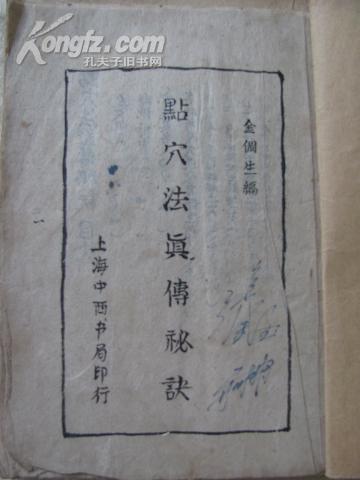 Kongfz.com
孔夫子旧书网
金倜生编
點穴法眞傳祕訣
上海中西书局印行